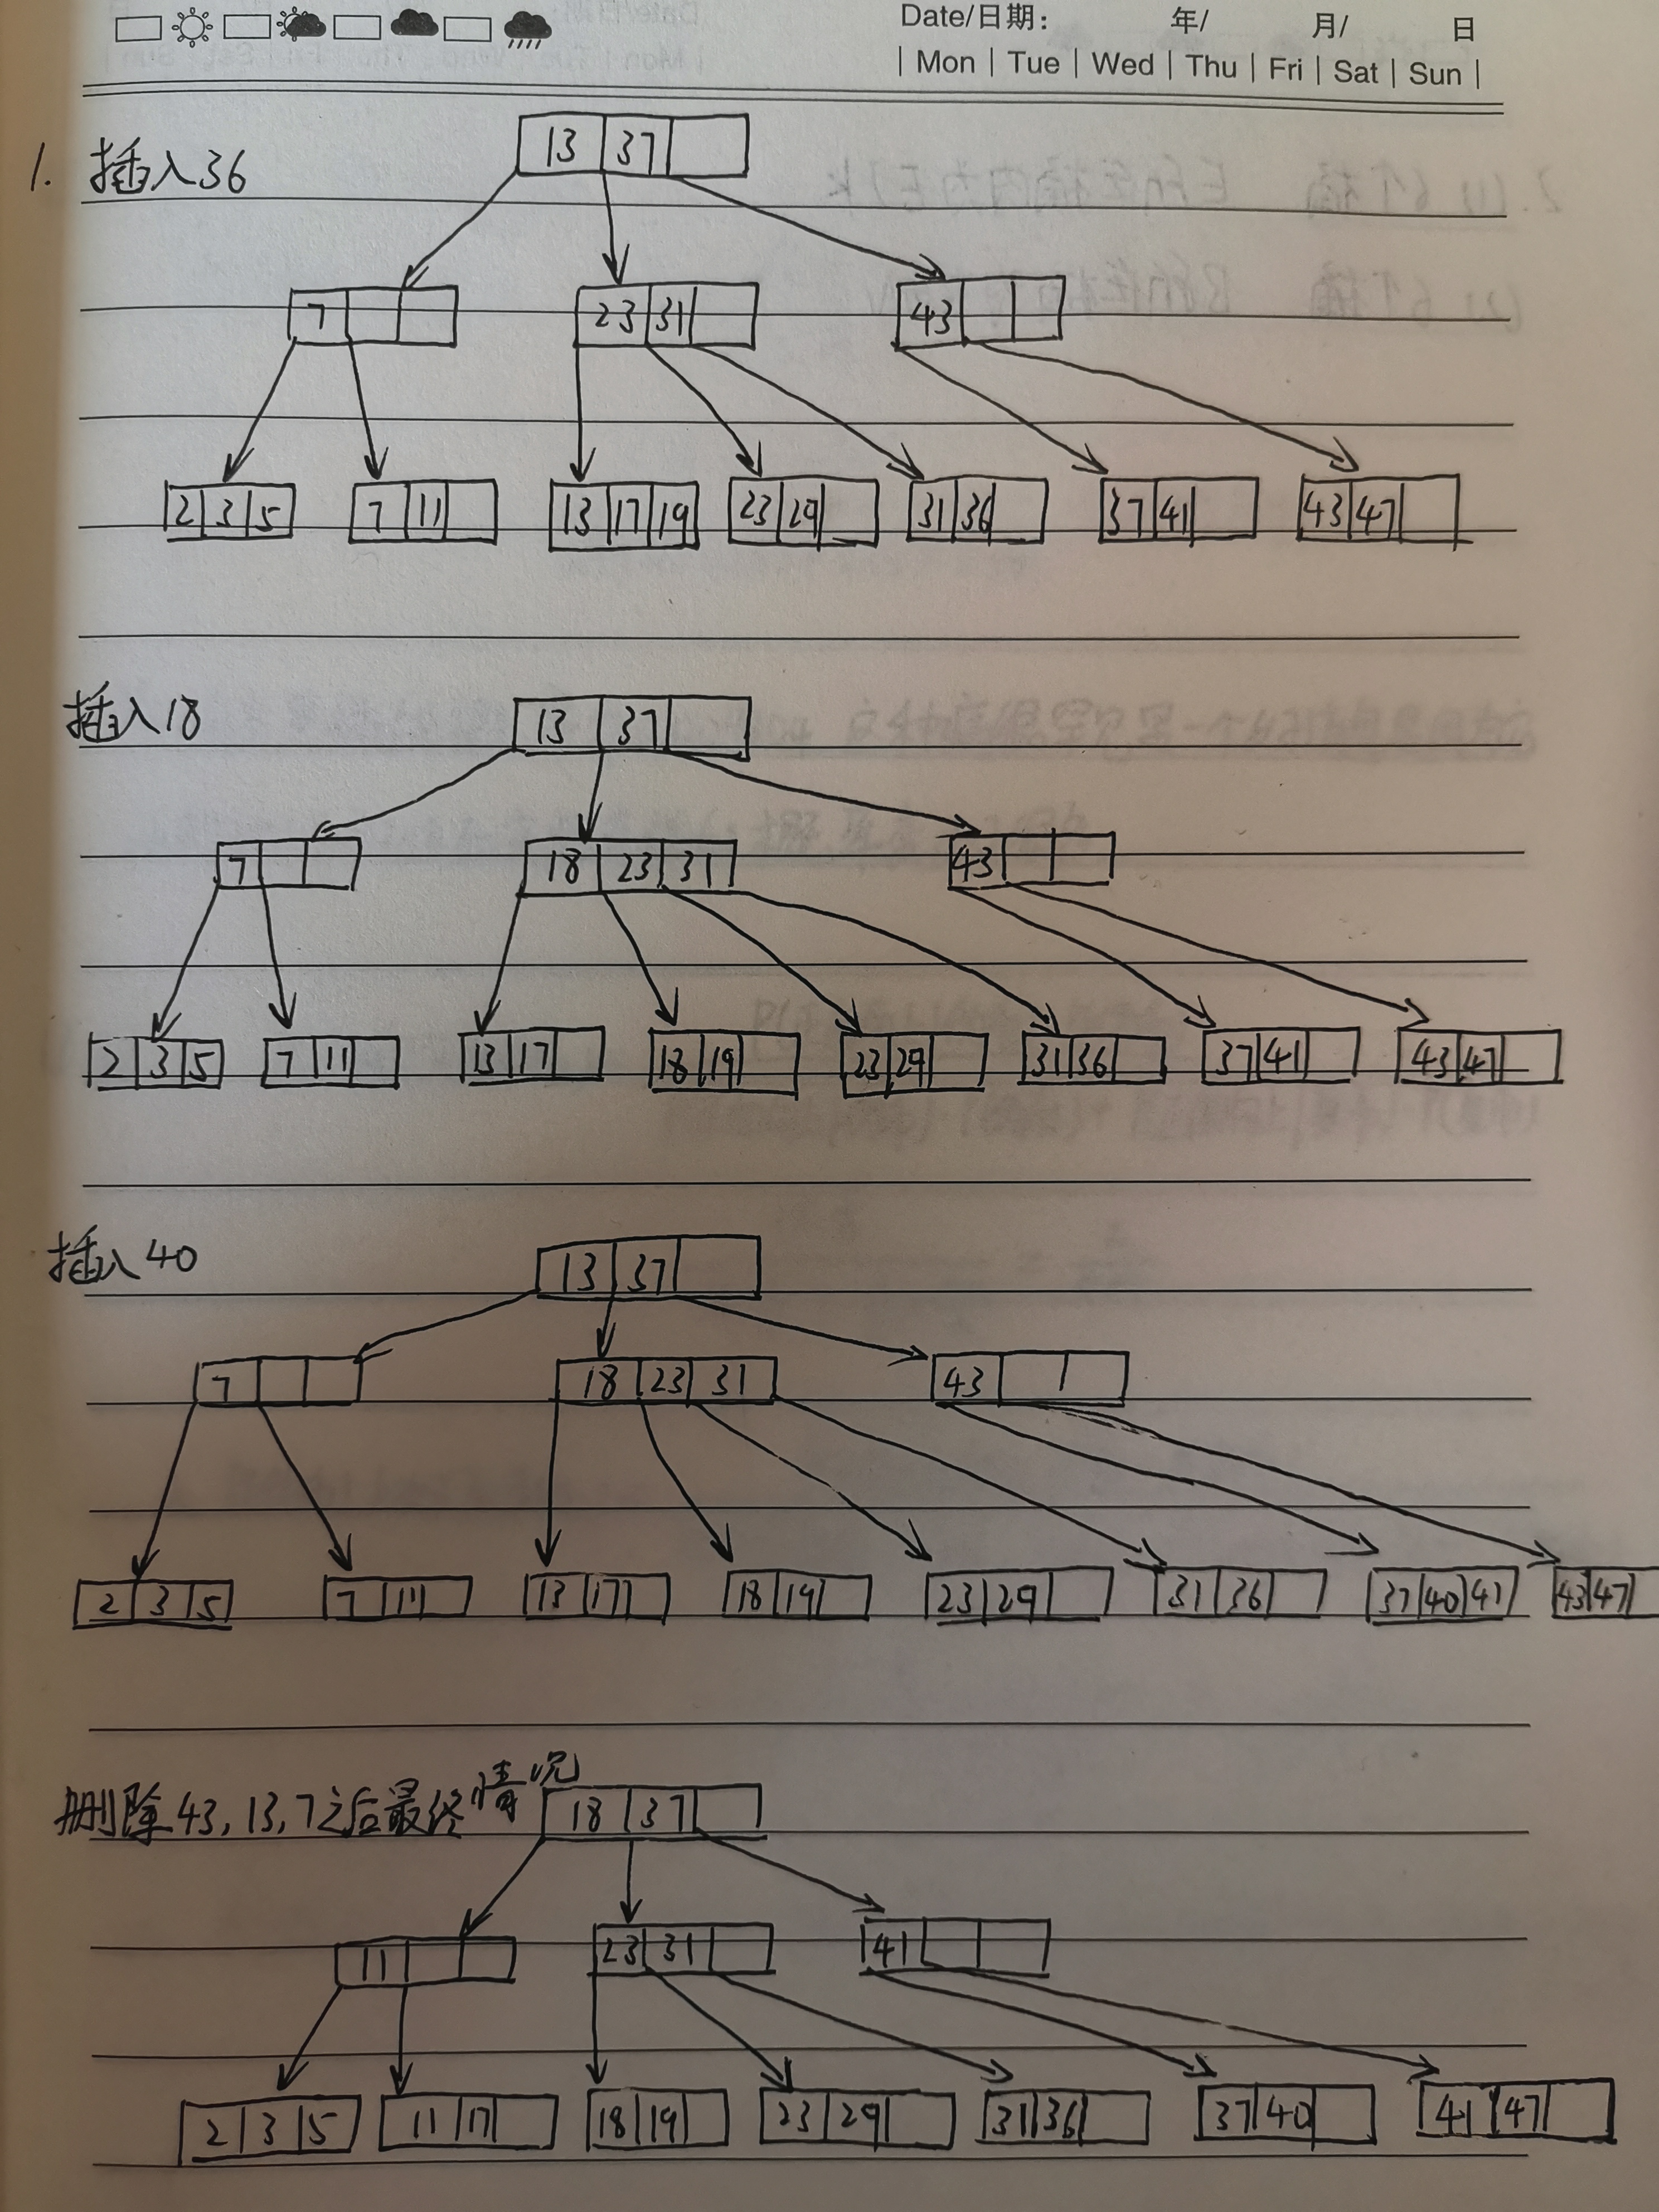 Date/日期: 年/ 月/ 日
| Mon | Tue | Wed | Thu | Fri | Sat | Sun |
1. 插入36 13 37
7 23 31 43
2 3 5 7 11 13 17 19 23 29 31 36 37 41 43 47
插入18 13 37
7 18 23 31 43
2 3 5 7 11 13 17 18 19 23 29 31 36 37 41 43 47
插入40 13 37
7 18 23 31 43
2 3 5 7 11 13 17 18 19 23 29 31 36 37 40 41 43 47
删除43,13,7之后最终情况 18 37
11 23 31 41
2 3 5 11 17 18 19 23 29 31 36 37 40 41 47